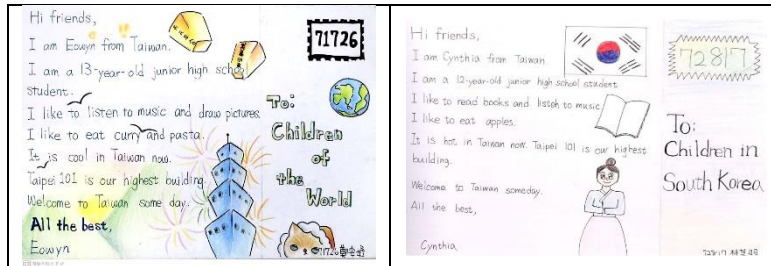 Hi friends,
I am Eowyn from Taiwan.
I am a 13-year-old junior high school
student.
I like to listen to music and draw pictures.
I like to eat curry and pasta.
It is cool in Taiwan now.
Taipei 101 is our highest building.
Welcome to Taiwan some day.
All the best,
Eowyn
71726
To:
Children
of
the World
71726
Hi friends,
I am Cynthia from Taiwan.
I am a 12-year-old junior high school student
I like to read books and listen to music.
I like to eat apples.
It is hot in Taiwan now. Taipei 101 is our highest
building.
Welcome to Taiwan someday.
All the best,
Cynthia
72817
To:
Children in
South Korea
72817